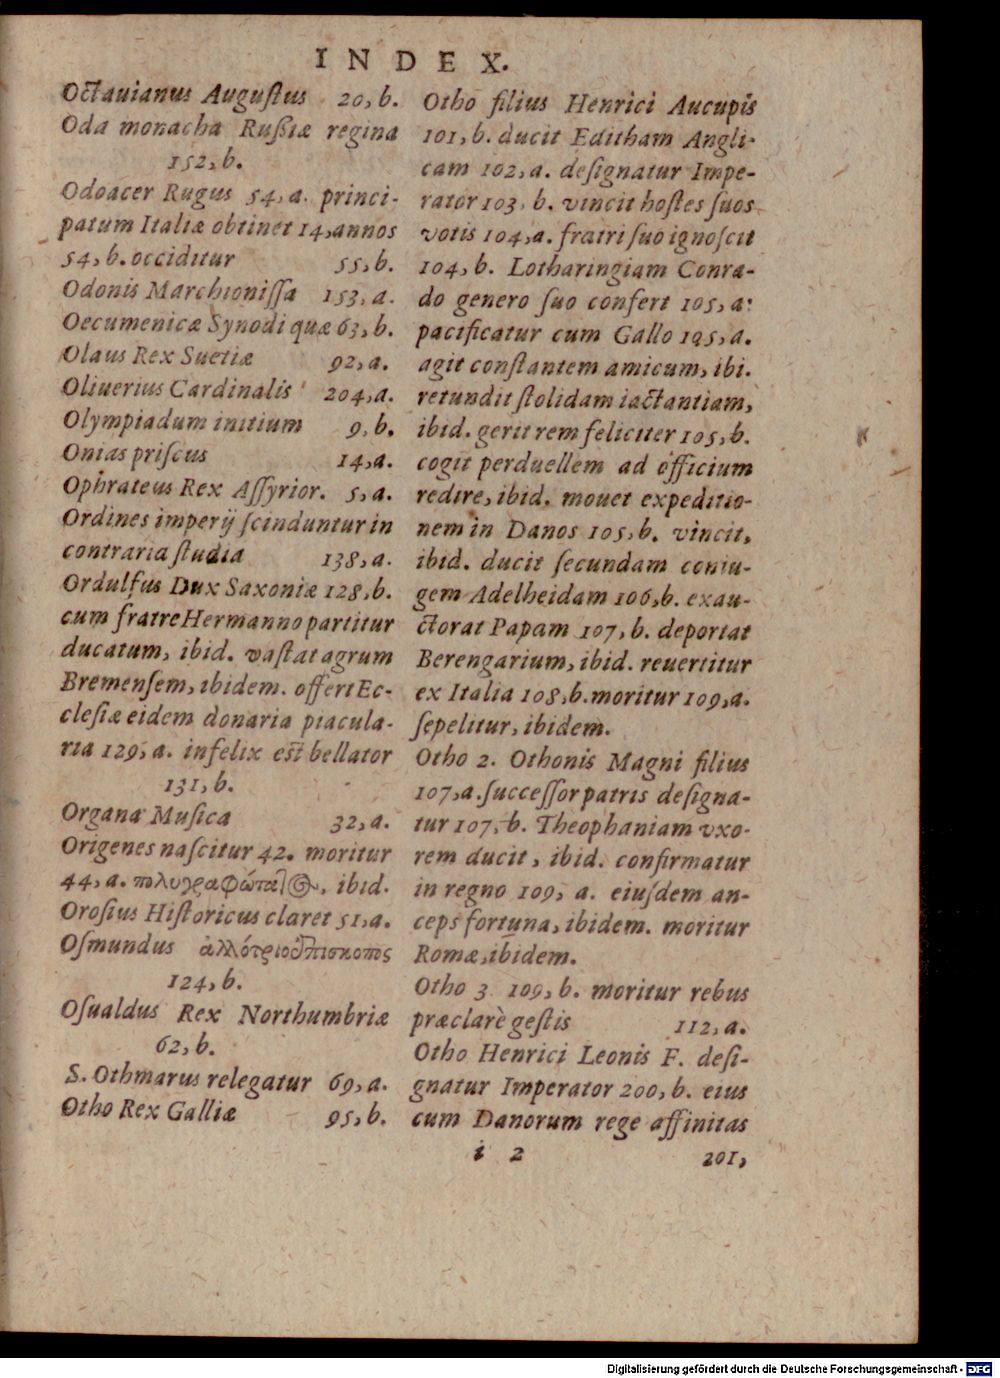 INDEX.
Octauianus Auguſtus 20, b.
Oda monacha Ruſſiæ regina
152, b.
Odoacer Rugus 54, a. princi-
patum Italiæ obtinet 14, annos
54, b. occiditur 55, b.
Odonis Marchioniſſa 153, a.
Oecumenicæ Synodi quæ 63, b.
Olaus Rex Suetiæ 92, a.
Oliuerius Cardinalis 204, a.
Olympiadum initium 9, b.
Onias priſcus 14, a.
Ophrateus Rex Aſſyrior. 5, a.
Ordines imperij ſcinduntur in
contraria ſtudia 138, a.
Ordulfus Dux Saxoniæ 128, b.
cum fratre Hermanno partitur
ducatum, ibid. vaſtat agrum
Bremenſem, ibidem. offert Ec-
cleſiæ eidem donaria piacula-
ria 129, a. infelix eſt bellator
131, b.
Organa Muſica 32, a.
Origenes naſcitur 42. moritur
44, a. ibid.
Oroſius Hiſtoricus claret 51, a.
Oſmundus ἀλλότριοεπίσκοπος
124, b.
Oſualdus Rex Northumbriæ
62, b.
S. Othmarus relegatur 69, a.
Otho Rex Galliæ 95, b.
Otho filius Henrici Aucupis
101, b. ducit Editham Angli-
cam 102, a. deſignatur Impe-
rator 103, b. vincit hoſtes ſuos
votis 104, a. fratri ſuo ignoſcit
104, b. Lotharingiam Conra-
do genero ſuo confert 105, a:
pacificatur cum Gallo 105, a.
agit conſtantem amicum, ibi.
retundit ſtolidam iactantiam,
ibid. gerit rem feliciter 105, b.
cogit perduellem ad officium
redire, ibid. mouet expeditio-
nem in Danos 105, b. vincit,
ibid. ducit ſecundam coniu-
gem Adelheidam 106, b. exau-
ctorat Papam 107, b. deportat
Berengarium, ibid. reuertitur
ex Italia 108, b. moritur 109, a.
ſepelitur, ibidem.
Otho 2. Othonis Magni filius
107, a. ſucceſſor patris deſigna-
tur 107, b. Theophaniam vxo-
rem ducit, ibid. confirmatur
in regno 109, a. eiuſdem an-
ceps fortuna, ibidem. moritur
Romæ, ibidem.
Otho 3 109, b. moritur rebus
præclarè geſtis 112, a.
Otho Henrici Leonis F. deſi-
gnatur Imperator 200, b. eius
cum Danorum rege affinitas
i 2 201,
Digitalisierung gefördert durch die Deutsche Forschungsgemeinschaft - DFG